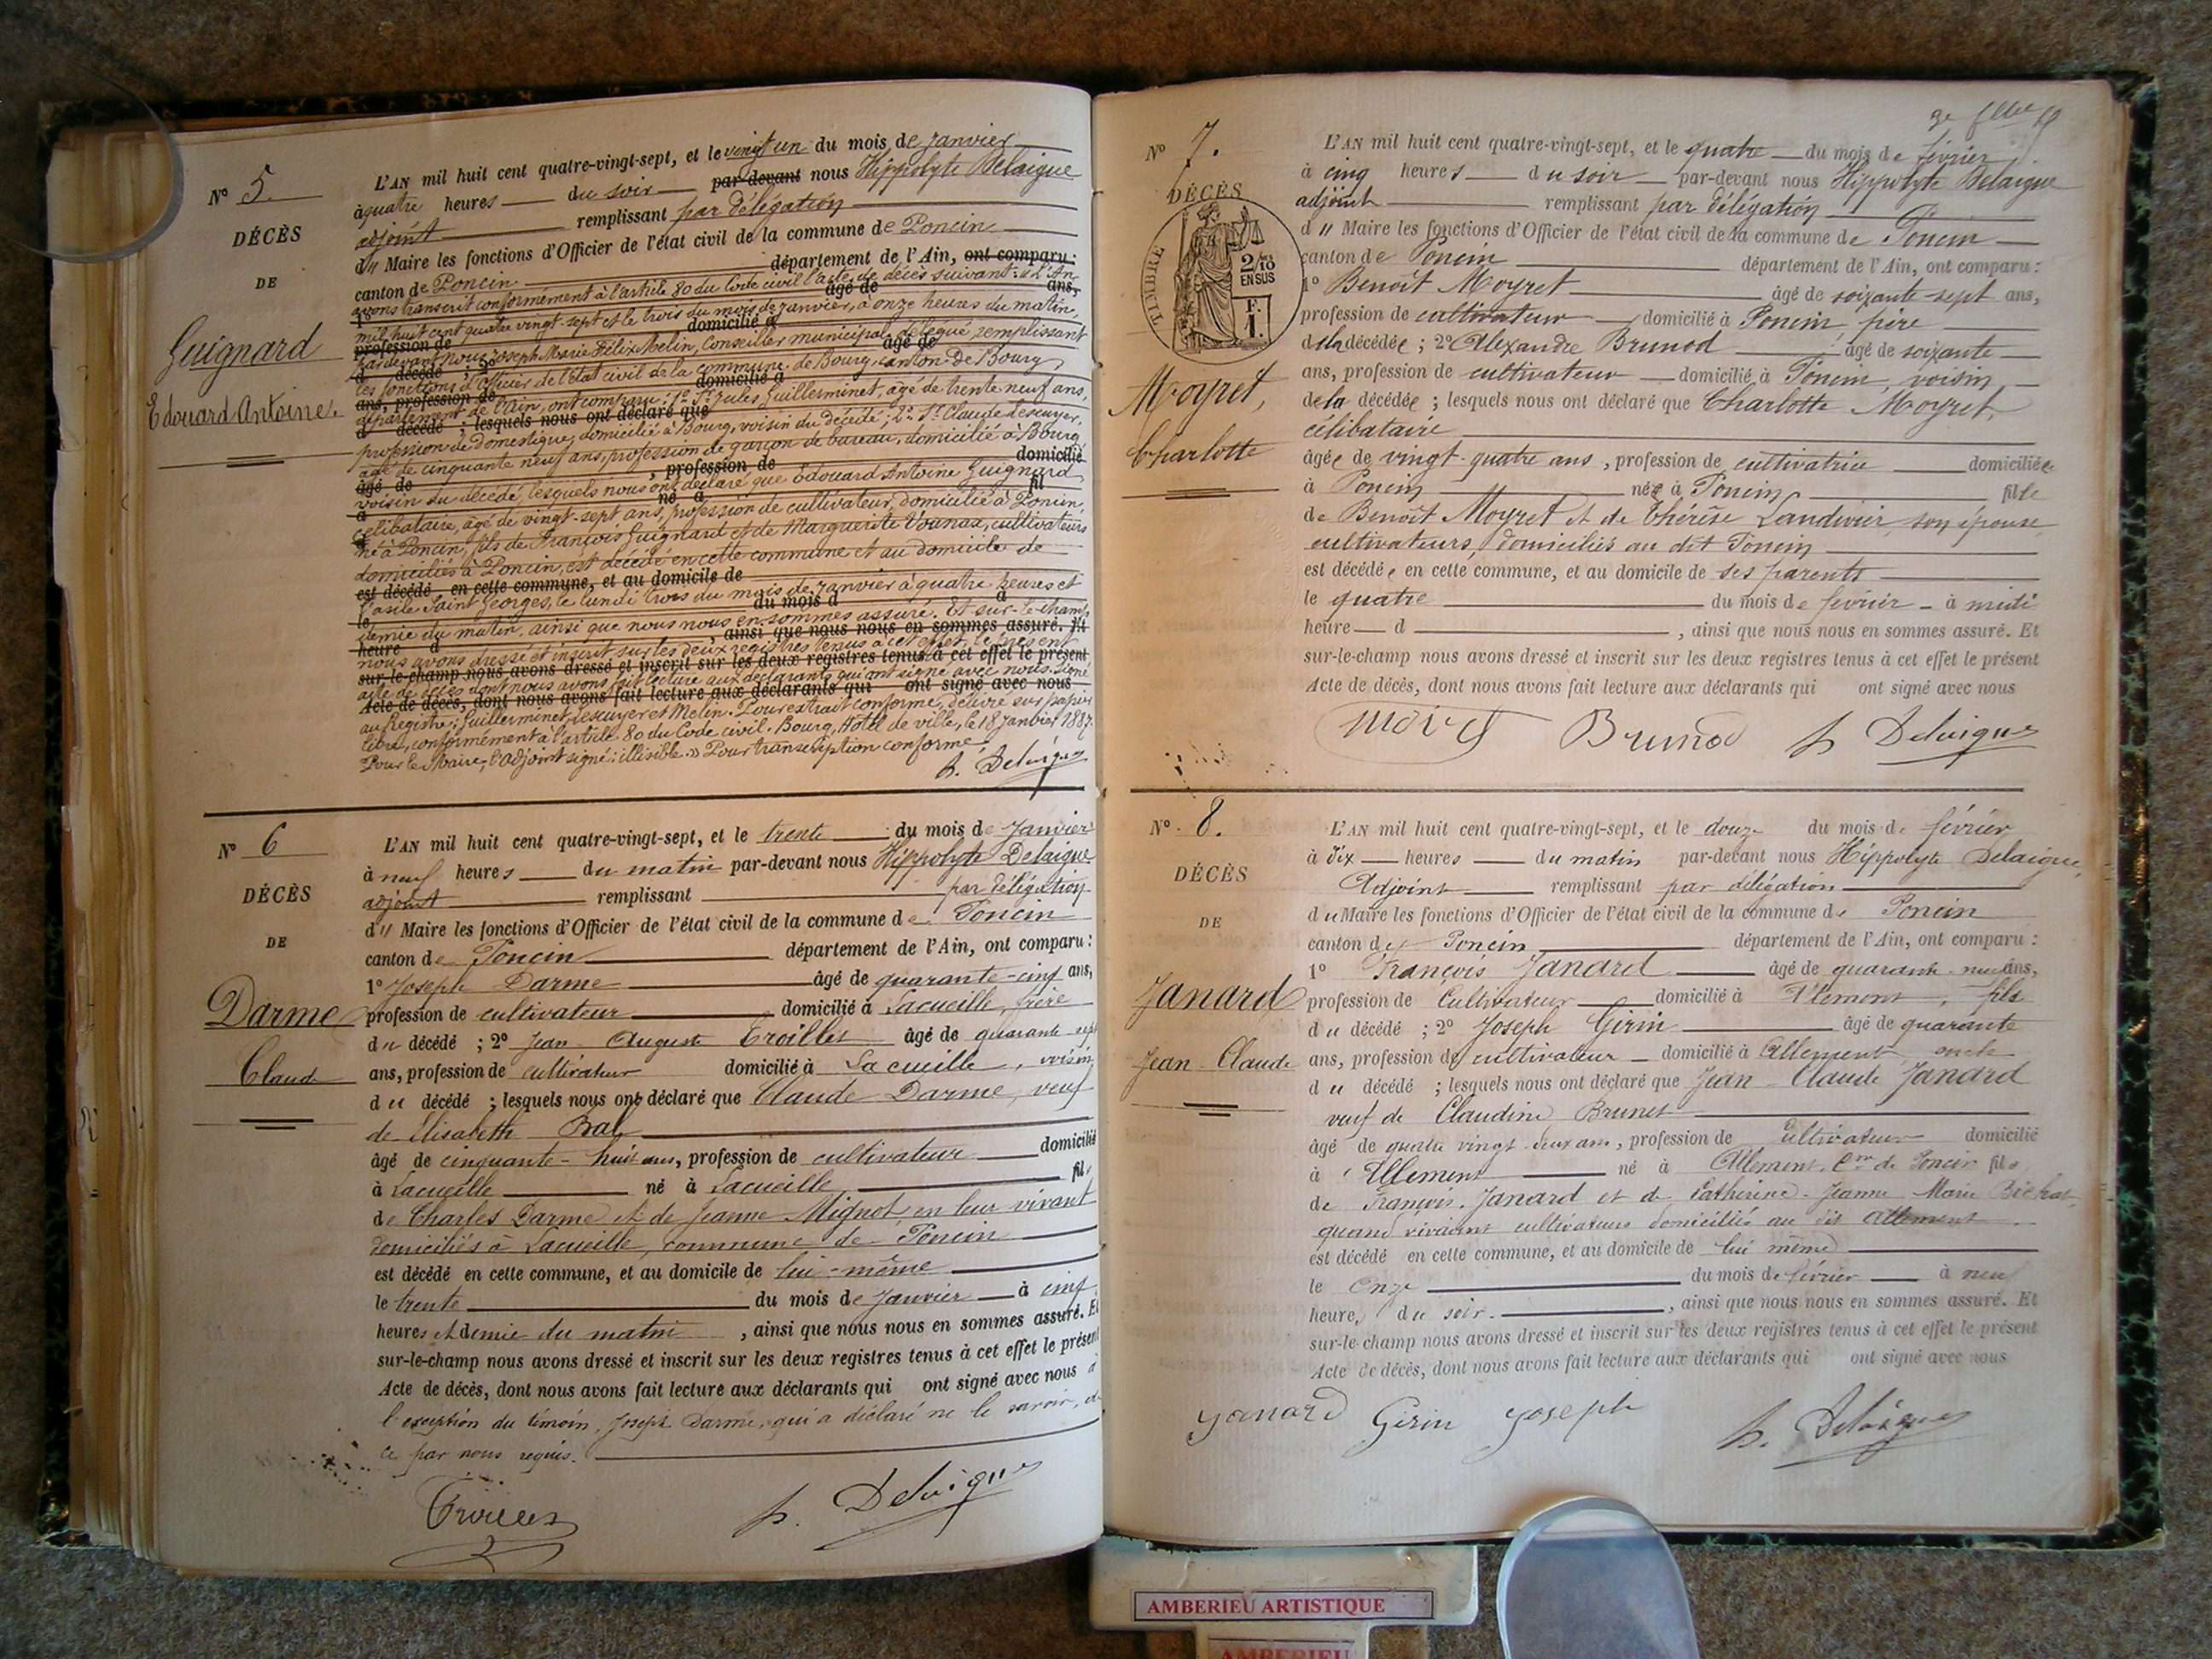 N° 5.
DÉCÈS
DE
Guignard
Edouard Antoine.
L'AN mil huit cent quatre-vingt-sept, et le vingt un du mois de Janvier
à quatre heures du soir par devant nous Hippolyte Delaigue
adjoint remplissant par délégation
du Maire les fonctions d'Officier de l'état civil de la commune de Poncin
canton de Poncin département de l'Ain, ont comparu :
avons transcrit conformément à l'article 80 du Code civil l'acte de décès suivant : « L'An
1° âgé de ans,
mil huit cent quatre vingt-sept et le trois du mois de Janvier, à onze heures du matin,
profession de domicilié à
pardevant nous Joseph Marie Félix Melin, Conseiller municipal délégué remplissant
d décédé ; 2° âgé de
les fonctions d'officier de l'état civil de la commune de Bourg, canton de Bourg,
ans, profession de domicilié à
département de l'Ain, ont comparu : 1° Sr Jules Guillerminet, âgé de trente neuf ans,
d décédé ; lesquels nous ont déclaré que
profession de Domestique, domicilié à Bourg, voisin du Décédé ; 2° Sr Claude Lescuyer,
âgé de cinquante neuf ans, profession de garçon de bureau, domicilié à Bourg
âgé de , profession de domicilié
voisin du décédé, lesquels nous ont déclaré que Edouard Antoine Guignard
à né à fil
célibataire, âgé de vingt-sept ans, profession de cultivateur, domicilié à Poncin,
né à Poncin, fils de François Guignard et de Marguerite cultivateurs
domiciliés à Poncin, est décédé en cette commune et au domicile de
est décédé en cette commune, et au domicile de
l'asile Saint Georges, le lundi trois du mois de Janvier à quatre heures et
le du mois d à
demie du matin, ainsi que nous nous en sommes assuré. Et sur-le-champ
heure d , ainsi que nous nous en sommes assuré. Et
nous avons dressé et inscrit sur les deux registres tenus à cet effet, le présent
sur-le-champ nous avons dressé et inscrit sur les deux registres tenus à cet effet le présent
acte de décès dont nous avons fait lecture aux déclarants qui ont signé avec nous. Signé
Acte de décès, dont nous avons fait lecture aux déclarants qui ont signé avec nous
au Registre : Guillerminet, Lescuyer et Melin. Pour extrait conforme, délivré sur papier
libre, conformément à l'article 80 du Code civil. Bourg, Hôtel de ville, le 18 Janvier 1887.
Pour le Maire, l'adjoint signé : illisible. » Pour transcription conforme,
h. Delaigue
N° 6
DÉCÈS
DE
Darme
Claude
L'AN mil huit cent quatre-vingt-sept, et le trente du mois de Janvier
à neuf heures du matin par-devant nous Hippolyte Delaigue
adjoint remplissant par délégation
du Maire les fonctions d'Officier de l'état civil de la commune de Poncin
canton de Poncin département de l'Ain, ont comparu :
1° Joseph Darme âgé de quarante-cinq ans,
profession de cultivateur domicilié à Lacueille, frère
du décédé ; 2° Jean Auguste Troillet âgé de quarante-sept
ans, profession de cultivateur domicilié à La cueille, voisin
du décédé ; lesquels nous ont déclaré que Claude Darme, veuf
de Elisabeth Bal
âgé de cinquante-huit ans, profession de cultivateur domicilié
à Lacueille né à Lacueille fils
de Charles Darme et de Jeanne Mignot en leur vivant
domiciliés à Lacueille, commune de Poncin
est décédé en cette commune, et au domicile de lui-même
le trente du mois de Janvier à cinq
heures et demie du matin , ainsi que nous nous en sommes assuré. Et
sur-le-champ nous avons dressé et inscrit sur les deux registres tenus à cet effet le présent
Acte de décès, dont nous avons fait lecture aux déclarants qui ont signé avec nous à
l'exception du témoin, Joseph Darme, qui a déclaré ne le savoir, de
ce par nous requis.
h. Delaigue
N° 7.
DÉCÈS
TIMBRE
2/10
EN SUS
F.
1.
Moyret,
Charlotte
L'AN mil huit cent quatre-vingt-sept, et le quatre du mois de février
à cinq heures du soir par-devant nous Hippolyte Delaigue
adjoint remplissant par délégation
du Maire les fonctions d'Officier de l'état civil de la commune de Poncin
canton de Poncin département de l'Ain, ont comparu :
1° Benoît Moyret âgé de soixante-sept ans,
profession de cultivateur domicilié à Poncin, père
de la décédée ; 2° Alexandre Brunod âgé de soixante
ans, profession de cultivateur domicilié à Poncin, voisin
de la décédée ; lesquels nous ont déclaré que Charlotte Moyret,
célibataire
âgée de vingt-quatre ans, profession de cultivatrice domiciliée
à Poncin née à Poncin fille
de Benoît Moyret et de Thérèse Landivier, son épouse
cultivateurs, domiciliés au dit Poncin
est décédée en cette commune, et au domicile de ses parents
le quatre du mois de février à midi
heure d , ainsi que nous nous en sommes assuré. Et
sur-le-champ nous avons dressé et inscrit sur les deux registres tenus à cet effet le présent
Acte de décès, dont nous avons fait lecture aux déclarants qui ont signé avec nous
Brunod h Delaigue
N° 8.
DÉCÈS
DE
Janard
Jean-Claude
L'AN mil huit cent quatre-vingt-sept, et le douze du mois de février
à dix heures du matin par-devant nous Hippolyte Delaigue,
Adjoint remplissant par délégation
du Maire les fonctions d'Officier de l'état civil de la commune de Poncin
canton de Poncin département de l'Ain, ont comparu :
1° François Janard âgé de quarante-neuf ans,
profession de Cultivateur domicilié à Allement, fils
du décédé ; 2° Joseph Girin âgé de quarante
ans, profession de cultivateur domicilié à Allement
du décédé ; lesquels nous ont déclaré que Jean-Claude Janard
veuf de Claudine Brunet
âgé de quatre vingt-deux ans, profession de Cultivateur domicilié
à Allement né à Allement, Cne de Poncin fils
de François Janard et de Catherine-Jeanne Marie
quand vivaient cultivateurs domiciliés au dit Allement
est décédé en cette commune, et au domicile de lui même
le onze du mois de février à neuf
heures du soir. , ainsi que nous nous en sommes assuré. Et
sur-le-champ nous avons dressé et inscrit sur les deux registres tenus à cet effet le présent
Acte de décès, dont nous avons fait lecture aux déclarants qui ont signé avec nous
Janard Girin Joseph h. Delaigue
AMBERIEU ARTISTIQUE
AMBERIEU